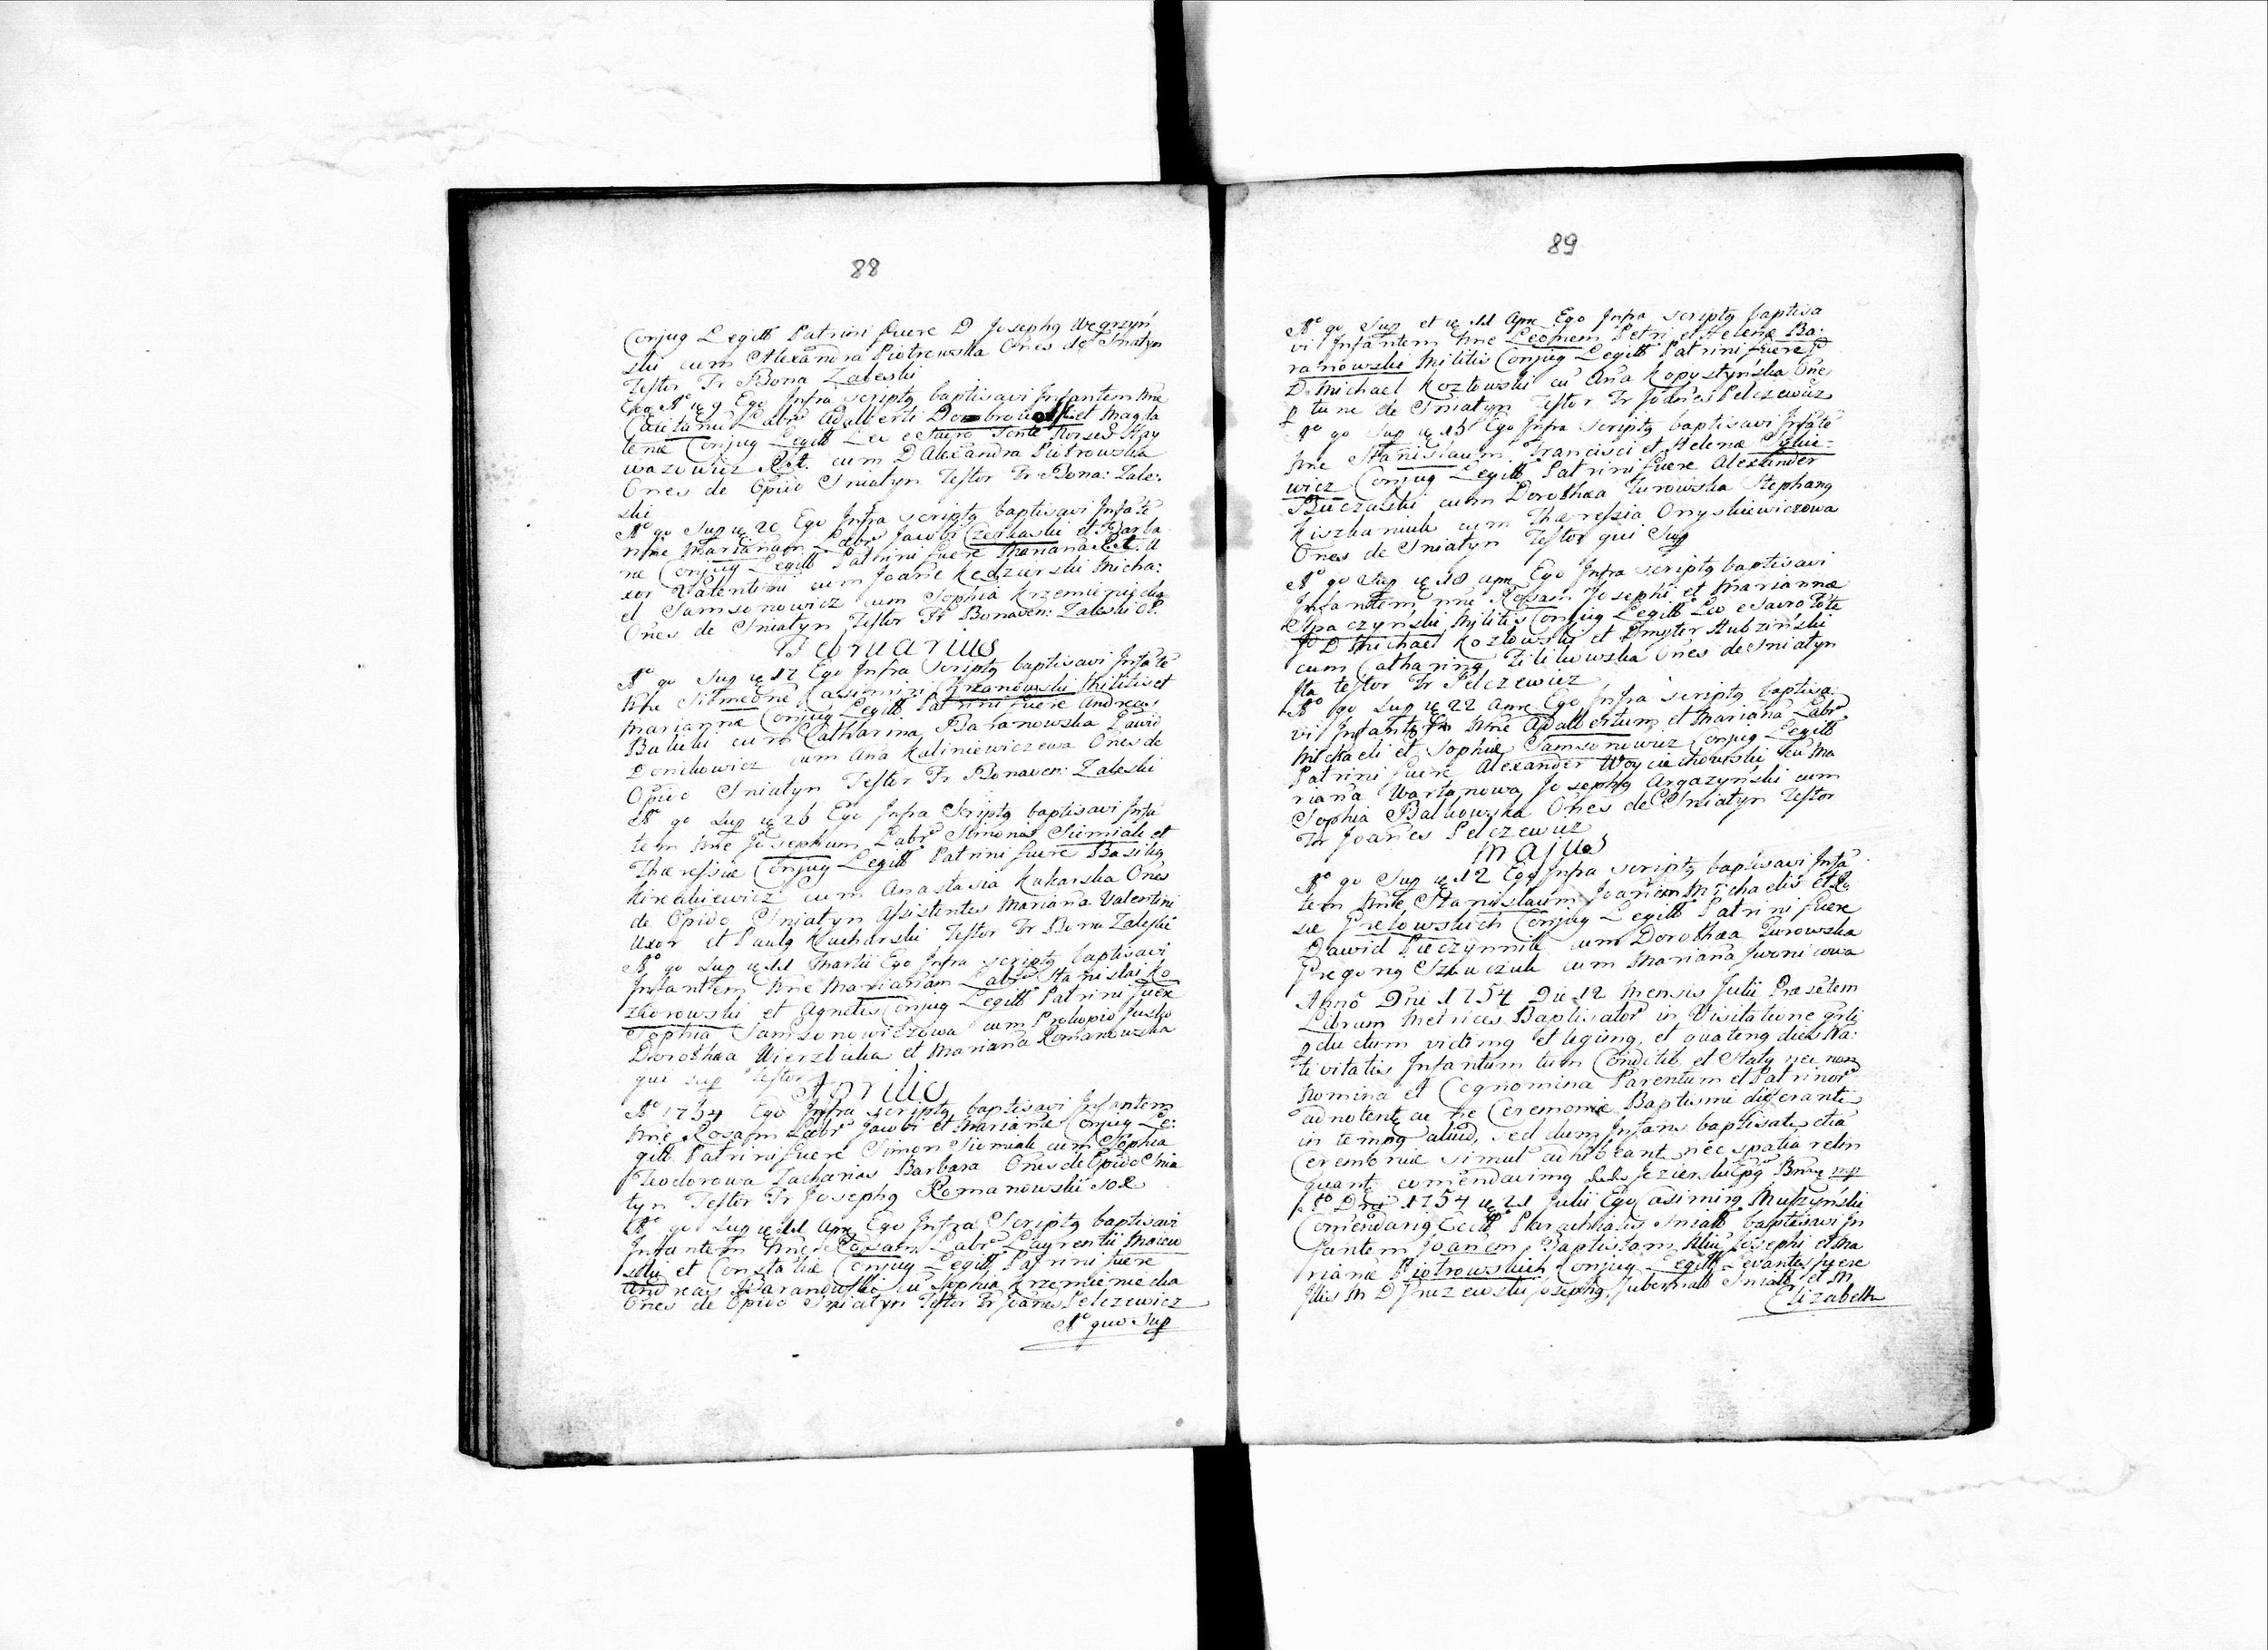 88
Conjug Legitt Patrini fuere D Josephq Węgrzyń
ski cum Alexandra Piotrowska Ones de Sniatyn
Testor Fr Bona Zaleski
Eod Aº ię 9 Ego Infra scriptq baptisavi Infantem nne
Caietanu Labr Adalberti Dombrowski et Magda
lenæ Conjug Legitt Leo e sacro fonte Norses Hay
wazowicz cum D Alexandra Piotrowska
Ones de Opido Sniatyn Testor Fr Bona: Zale:
ski
Aº qo Sup ię 20 Ego Infra scriptq baptisavi Infate
nne Mariannam Labr Jacobi Czerkaski et Barba
ræ Conjug Legitt Patrini fuere Mariana U
xor Valentini cum Joane Kedzierski Micha:
el Samsonowicz cum Sophia Krzemieniecka
Ones de Sniatyn Testor Fr Bonaven: Zaleski OP.
Februarius
Aº qo Sup ię 17 Ego Infra scriptq baptisavi Infate
nne Simeone Casimiri Krzanowski Militis et
Mariannæ Conjug Legitt Patrini fuere Andreas
Babicki cum Catharina Baranowska David
Donikowicz cum Ana Kaliniewiczewa Ones de
Opido Sniatyn Testor Fr Bonaven: Zaleski
Aº qo Sup ię 26 Ego Infra Scriptq baptisavi Infa
tem nne Josephum Labr Simonis Simiak et
Theressiæ Conjug Legitt Patrini fuere Basiliq
Kireakiewicz cum Anastasia Kukarska Ones
de Opido Sniatyn Assistentes Mariana Valentini
Uxor et Paulq Kucharski Testor Fr Bona Zaleski
Aº qo Sup ię 11 Martii Ego Infra scriptq baptisavi
Infantem nne Mariannam Labr Stanislai Ko
zkorowski et Agnetis Conjug Legitt Patrini fuere
Sophia Samsonowiczowa cum Prokopio
Dorothea Wierzbicka et Mariana Romanowska
qui sup Testor
Aprilis
Aº 1754 Ego Infra scriptq baptisavi Infantem
nne Rosam Labr Jacobi et Marianæ Conjug Le:
gitt Patrini fuere Simon Simiak cum Sophia
Teodorowa Zacharias Barbara Ones de Opido Snia
tyn Testor Fr Josephq Romanowski
Aº qo Sup ię 11 Apr Ego Infra Scriptq baptisavi
Infantem nne Rosam Labr Laurentii Maiew
ski et Constatiæ Conjug Legitt Patrini fuere
Andreas Baranowski cu Sophia Krzemieniecka
Ones de Opido Sniatyn Testor Fr Joanes Pelczewicz
Aº quo Sup
89
Aº qo Sup et ię 11 Apr Ego Infra scriptq baptisa
vi Infantem nne Leonem Petri et Helenæ Ba:
ranowski Militis Conjug Legitt Patrini fuere
D. Michael Kozłowski cu Ana Kopystyńska Ones
p tunc de Sniatyn Testor Fr Joanes Pelczewicz
Aº qo Sup ię 15 Ego Infra scriptq baptisavi Infate
nne Stanislaum Francisci et Helenæ
wicz Conjug Legitt Patrini fuere Alexander
Buczalski cum Dorothea Turowska Stephanq
Kiszkaniuk cum Theressia Onyskiewiczowa
Ones de Sniatyn Testor qui Sup
Aº qo Sup ię 18 Apr Ego Infra scriptq baptisavi
Infantem nne Rosam Josephi et Mariannæ
Militis Conjug Legitt Leo e sacro Fote
D Michael Kozłowski et Dmyter Hubziński
cum Catharina Zilikowska Ones de Sniatyn
Ita testor Fr Pelczewicz
Aº qo Sup ię 22 Apr Ego Infra scriptq baptisa
vi Infantem nne Adalbertum et Mariana Labr
Michaeli et Sophiæ Samsonowicz Conjug Legitt
Patrini fuere Alexander Woyciechowski cu Ma
riana Wartanowa Josephq Argazyński cum
Sophia Balkowska Ones de Sniatyn Testor
Fr Joanes Pelczewicz
Majus
Aº qo Sup ię 12 Ego Infra scriptq baptisavi Infa
tem nne Stanislaum Joanem Michaelis et Ro
sæ Grekowskich Conjug Legitt Patrini fuere
Dawid Pieczynnik cum Dorothea Turowska
Gregoriq Szewczuk cum Mariana Jwonicowa
Anno Dni 1754 Die 12 Mensis Julii Præsetem
Librum Metrices Baptisator in Visitatione grli
pductum vidimq et legimq, et quatenq dies Na:
tivitatis Infantum tum Conditio et Statq nec non
Nomina et Cognomina Parentum et Patrinor
adnotent ac ne Ceremoniæ Baptismi differantr
in tempq aliud, sed dum Infans baptisatr, etiā
Ceremoniæ simul adhibeant nec spatia relin
quant comendavimq Jezierski Epq
Aº Dni 1754 ię 21 Julii Ego Casimirq Muszyński
Comendariq Eccl Parachialis Sniatt baptisavi In
fantem Joanem Baptistam filiu Josephi et Ma
rianæ Piotrowskich Conjug Legitt Levantes fuere
Illis M D Josephq Gubernatt Sniatt et M
Elizabeth